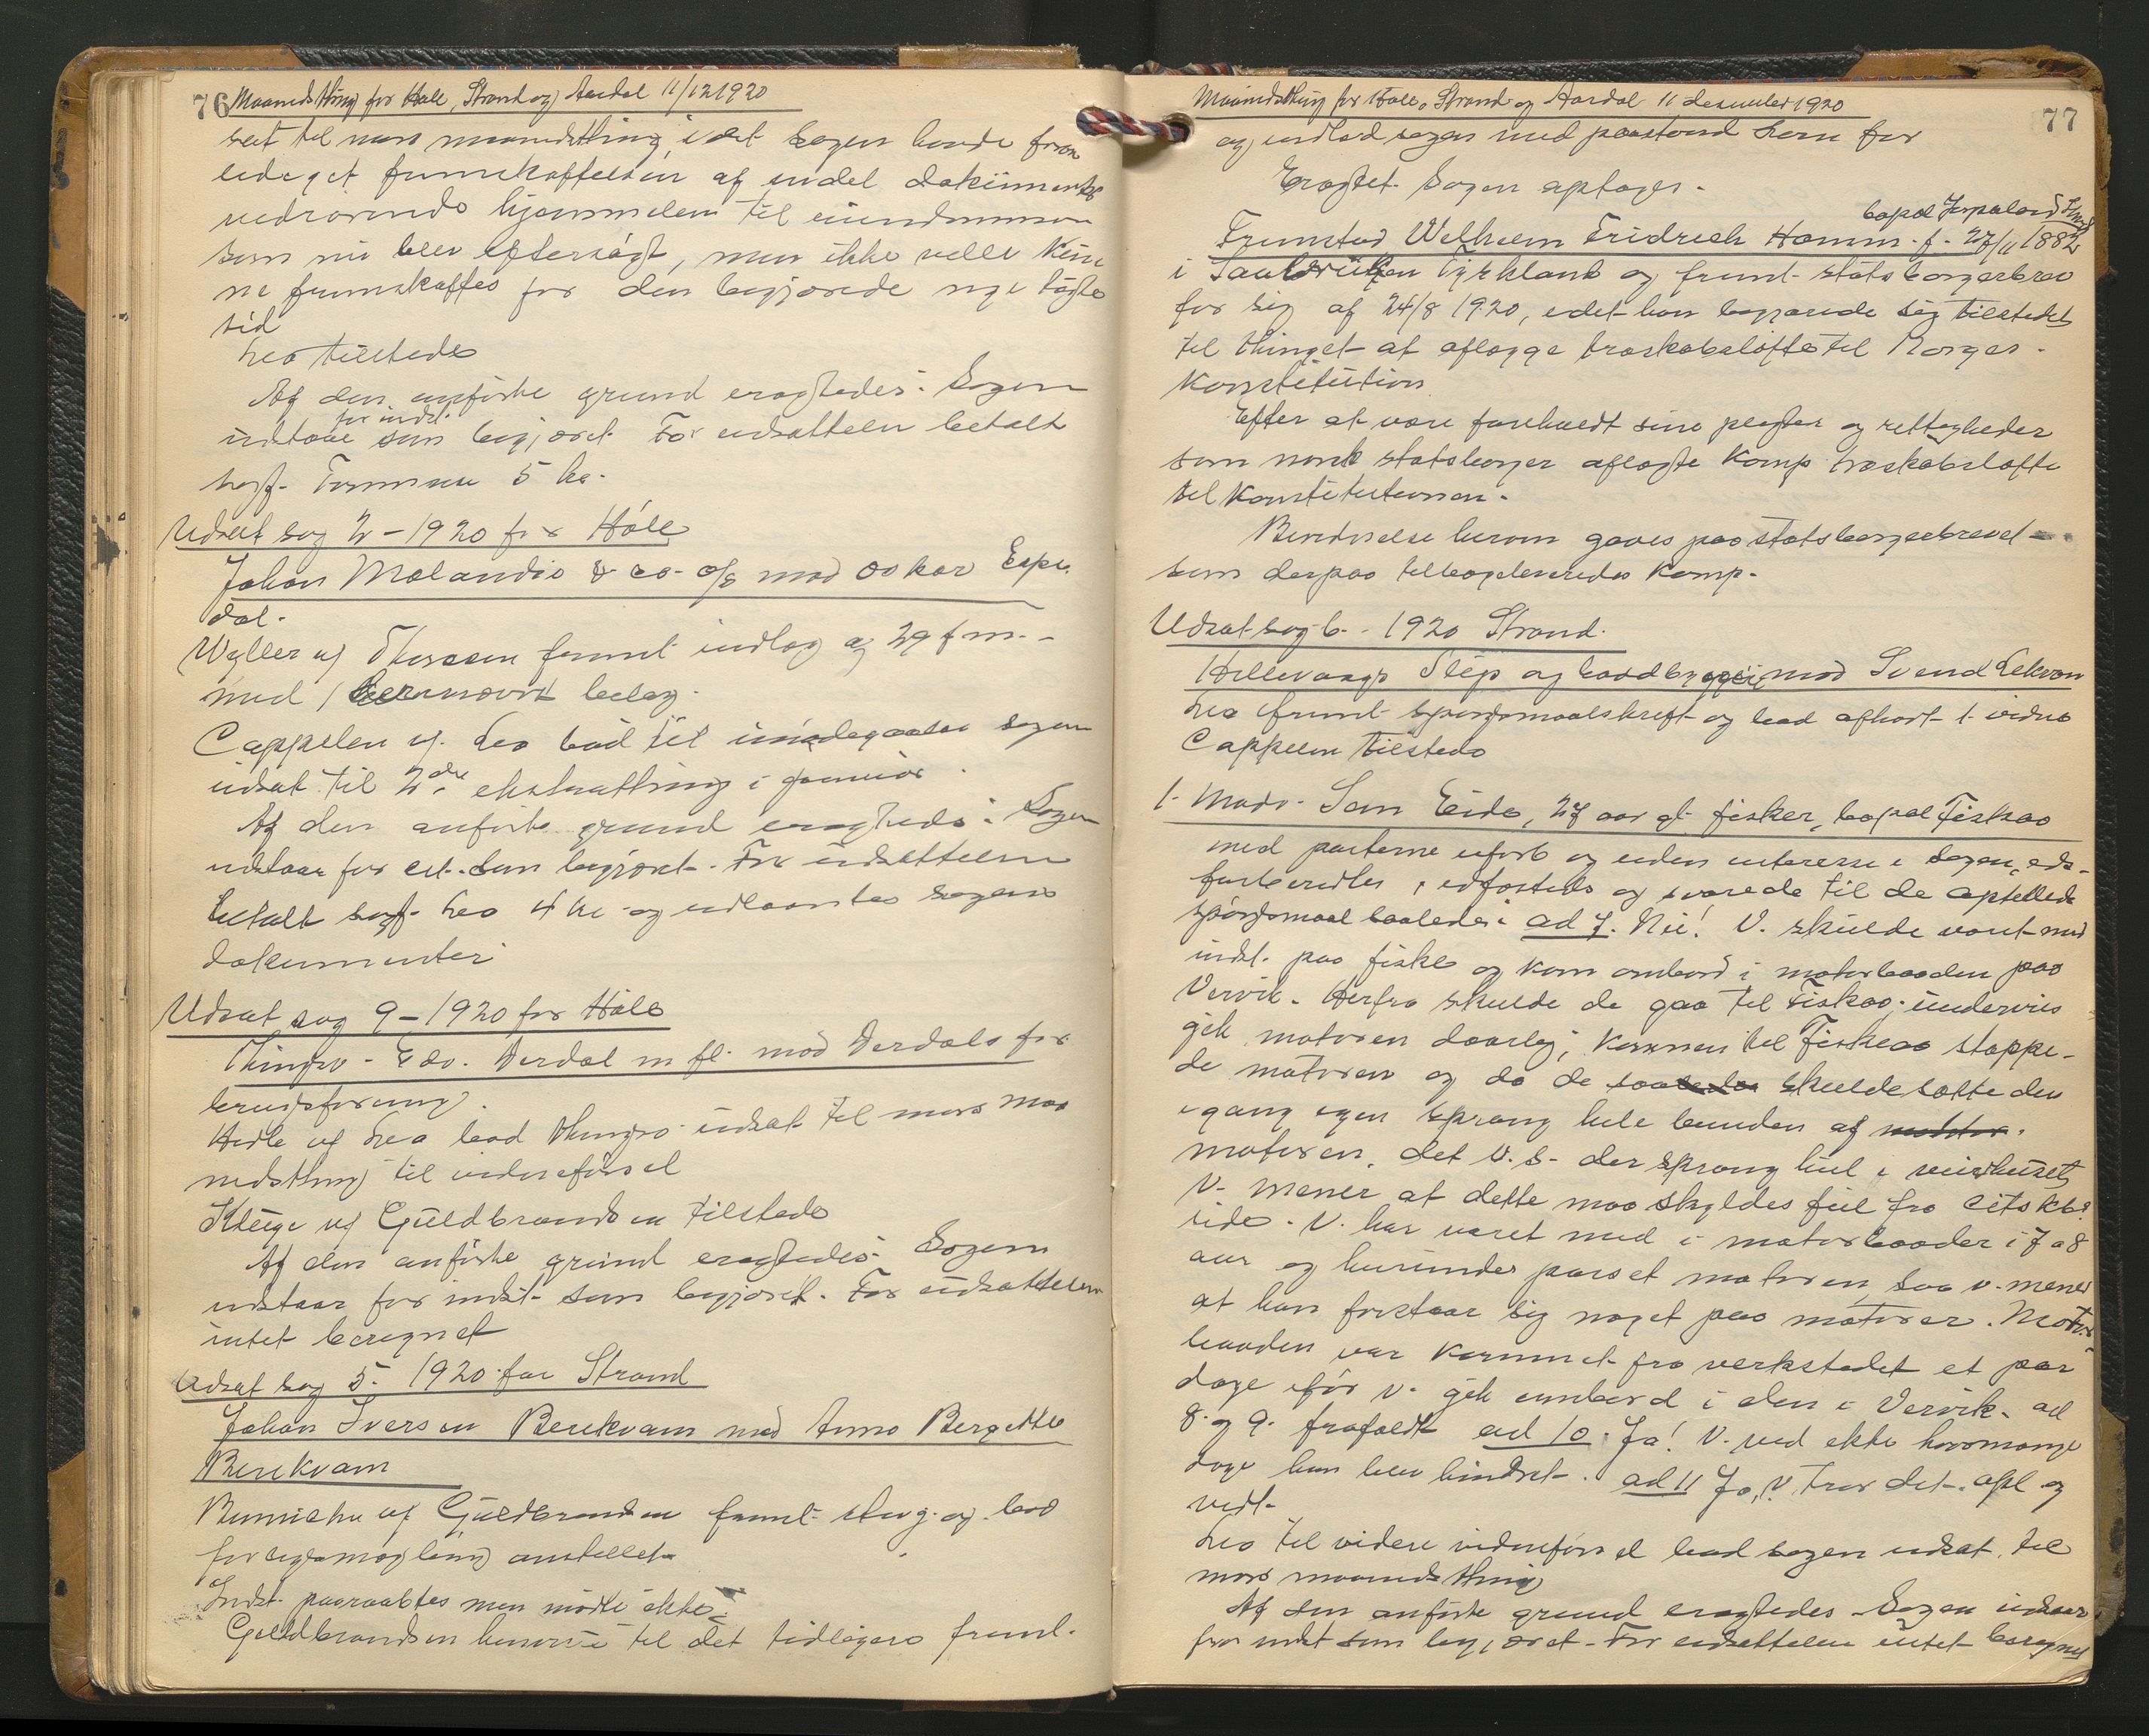 76 Maanedsthing for Høle, Strand og Aardal 11/12 1920
sat til mars maanedsthing, idet sagen havde foran
lediget fremskaffelsen af endel dokumenter
vedrørende hjemmelen til eiendommen
som nu blev eftersøgt, men ikke vilde kun
ne fremskaffes for den begjærede nye tægte
tid
Lea tilstede
Af den anførte grund eragtedes: Sagen
for indst.
udstaar som begjæret. For udsættelsen betalt
sagf. 5 kr.
Udsat sag 2 - 1920 for Høle
Johan Molandio & co. a/s mod Oskar Espe
dal.
Wyller vf Thorssen freml. indlæg af 29 f m.
med 1 bilag.
Cappelen vf. Lea bad til imødegaaelse sagen
udsat til 2det ekstrathing i januar.
Af den anførte grund eragtedes: Sagen
udstaar for indst. som begjæret. For udsættelsen
betalt sagf. Lea 4 kr og udlaantes sagens
dokumenter
Udsat sag 9 - 1920 for Høle
Thingsv. Edv. Derdal m fl. mod Verdals for
brugsforening.
Helle vf Lea bad Thingsv. udsat til mars maa
nedsthing til vidneførsel
Kluge vf Guldbrandsen tilstede
Af den anførte grund eragtedes: Sagen
udstaar for indst. som begjæret. For udsættelsen
intet beregnet
Udsat sag 5 - 1920 for Strand
Johan Iversen Berekvam mod Anna Bergitte
Berekvam
vf Guldbrandsen freml. stevn. og bad
forligsmægling anstillet
Indst. paaraabtes men mødte ikke
Guldbrandsen henviste til det tidligere freml.
Maanedsthing for Høle, Strand og Aardal 11 december 1920
77
og indlod sagen med paastand som før
Eragtet: Sagen optages.
bopæl Jørpeland Strand
Fremstod Wilhelm Fridrich Hamm f. 27/11 1882
i Tyskland og freml. statsborgerbrev
for sig af 24/8 1920, idet han begjærede sig tilstedet
til thinget at aflægge troskabsløfte til Norges
Konstitution
Efter at være foreholdt sine pligter og rettigheder
som norsk statsborger aflagte Komp troskabsløfte
til Konstitutionen.
Bevidnelse herom gaves paa statsborgerbrevet
som derpaa tilbageleveredes Komp.
Udsat sag 6 - 1920 Strand.
Hellevaags Slip og baadbyggeri mod Svend Lekvam
Lea freml. spørgsmaalskrift og bad afhørt 1 vidne
Cappelen tilstede
1. Mads Sem Eide, 27 aar gl. fisker, bopæl Fiskaa
med parterne ubesl og uden interesse i sagen, eds-
forberedtes, edfæstedes og svarede til de opstillede
spørgsmaal saaledes: ad 7. Nei! V. skulde været med
indst. paa fiske og kom ombord i motorbaaden paa
Vervik. Herfra skulde de gaa til Fiskaa; underveis
gik motoren daarlig, kommen til Fiskaa stoppe-
de motoren og da de skulde sætte den
igang igen sprang hele bunden af
motoren, det v.s. der sprang hul i veivhuset
V. mener at dette maa skyldes feil fra citskts
side. V. har været med i motorbaader i 7 a 8
aar og herunder passet motoren, saa v. mener
at han forstaar sig noget paa motorer. Motor
baaden var kommet fra verkstedet et par
dage før v. gik ombord i den i Vervik. ad
8. og 9. frafaldt ad 10. Ja! V. ved ikke hvormange
dage han blev hindret. ad 11 Ja, V. tror det. opl. og
vedt.
Lea til videre vidneførsel bad sagen udsat til
mars maanedsthing
Af den anførte grund eragtedes: Sagen udstaar
for indst som begjæret. For udsættelsen intet beregnet